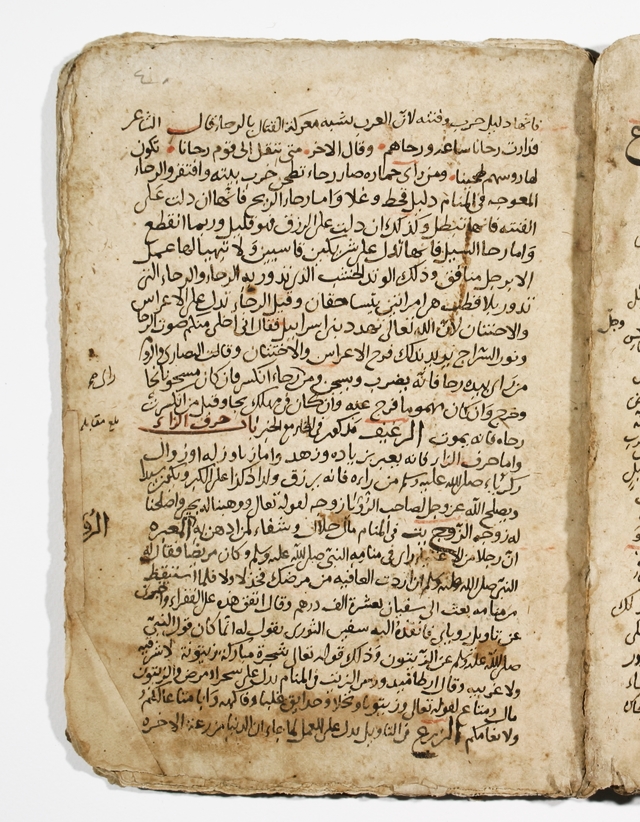 فانها دليل حرب وفتنه لان العرب تشبه معركة القتال بالرحا قال الشاعر
فدارت رحانا ساعة ورحاهم وقال الاخر متى ننقل الى قوم رحانا تكون
لها روسهم طحينا ومن راى حماره صار رحاء تطحن خرب بيته وافتقر والرحاء
المعوجه في المنام دليل قحط وغلا واما رحاء الريح فانها ان دلت على
الفتنه فانها تبطل وكذلك ان دلت على الرزق فهو قليل وربما انقطع
واما رحا السيل فانها تدل على شريكين قاسيين ولا تتهيا لهما عمل
الا برجل منافق وذلك الوتد الخشب الذي تدور به الرحاء والرحاء التي
تدور بلا قطب هي امراتين يتساحقان وقيل الرحاء تدل على الاعراس
والاختتان لان الله تعالى تهدد بني اسرائيل فقال اني اخلي منكم صوت الرحا
ونور السراج يريد بذلك فرح الاعراس والاختتان وقالت النصارى والروم
من راى بيده رحا فانه يضرب ويسجن ومن رحاء انكسر فان كان مسجونا نجا
وخرج وان كان مهموما فرج عنه وان كان في مهلك نجا وقيل من انكسرت
رحاه فانه يموت الرغيف مذكور في الخاء مع الخبز باب حرف الزاء
واما حرف الزاء فانه يعبر بزياده وزهد واما زياوزله او زوال
زكرياء صلى الله عليه وسلم من راه فانه يرزق ولدا ذكرا على الكبر ويكون سيدا
ويصلح الله عز وجل لصاحب الرؤيا زوجه لقوله تعالى ووهبنا له يحيى واصلحنا
له زوجه الزيت في المنام مال حلال وشفاء لمن ادهن به
ان رجلا من راى في منامه النبي صلى الله عليه وسلم وكان مريضا فقال له
النبي صلى الله عليه وسلم ان اردت العافيه من مرضك فخذ لا ولا فلما استيقظ
من منامه بعث الى سفيان بعشرة الف درهم وقال انفق هذه على الفقراء
عن تاويل روياي فانفذ اليه سفين الثوري يقول له انما كان قول النبي
صلى الله عليه وسلم عن الزيتون وذلك قوله تعالى شجرة مباركة زيتونة لا شرقيه
ولا غربيه وقال ارطاميدورس الزيت في المنام يدل على سحر او مرض والزيتون
مال ومتاع لقوله تعالى وزيتونا ونخلا وحدايق غلبا وفاكهة وابا متاعا لكم
ولانعامكم الزرع في التاويل يدل على العمل لما جاء ان الدنيا مزرعة الاخره